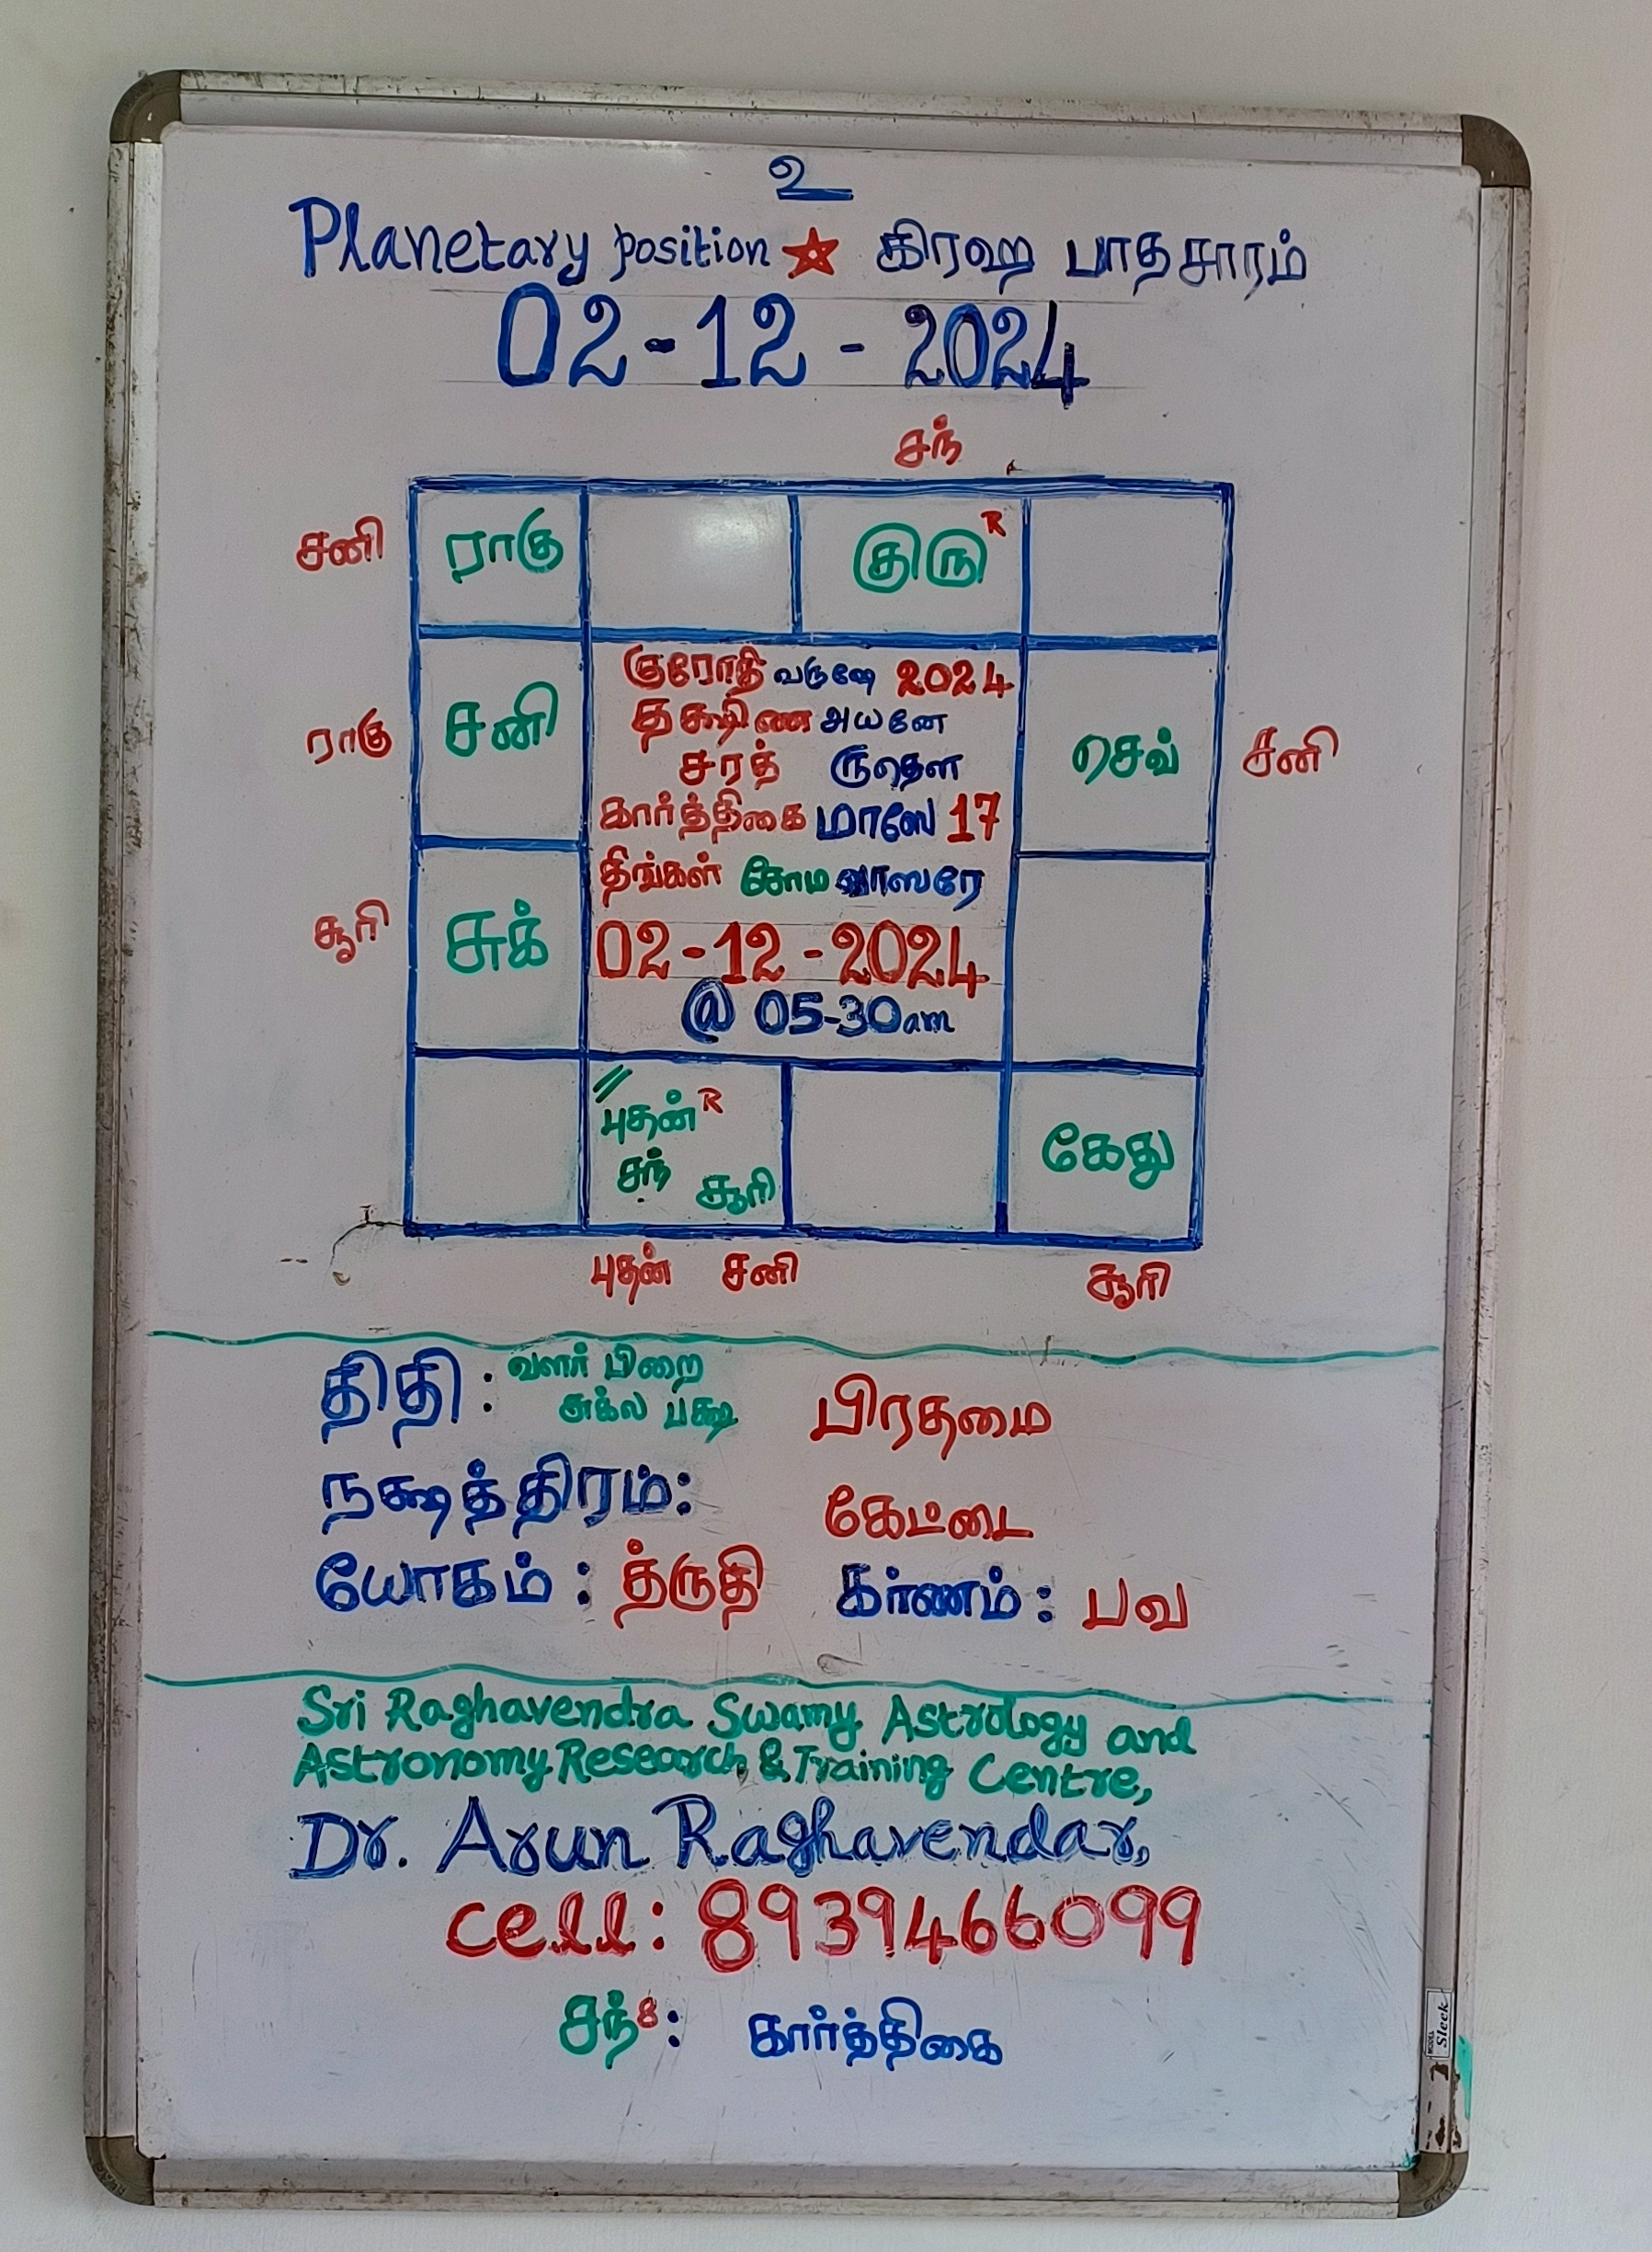 உ
Planetary position ☆ கிரஹ பாதசாரம்
02-12-2024
சந்
சனி ராகு குரு R
குரோதி வருஷே 2024
தக்ஷிண அயனே
சரத் ருதௌ
ராகு சனி செவ் சனி
கார்த்திகை மாஸே 17
திங்கள் சோம வாஸரே
சூரி சுக்
02-12-2024
@ 05-30am
புதன் R
சந் சூரி
கேது
புதன் சனி சூரி
திதி: வளர் பிறை
சுக்ல பக்ஷ பிரதமை
நக்ஷத்திரம்: கேட்டை
யோகம்: த்ருதி கர்ணம்: பவ
Sri Raghavendra Swamy Astrology and
Astronomy Research & Training Centre,
Dr. Arun Raghavendar,
cell: 8939466099
சந்8: கார்த்திகை
MODEL Sleek